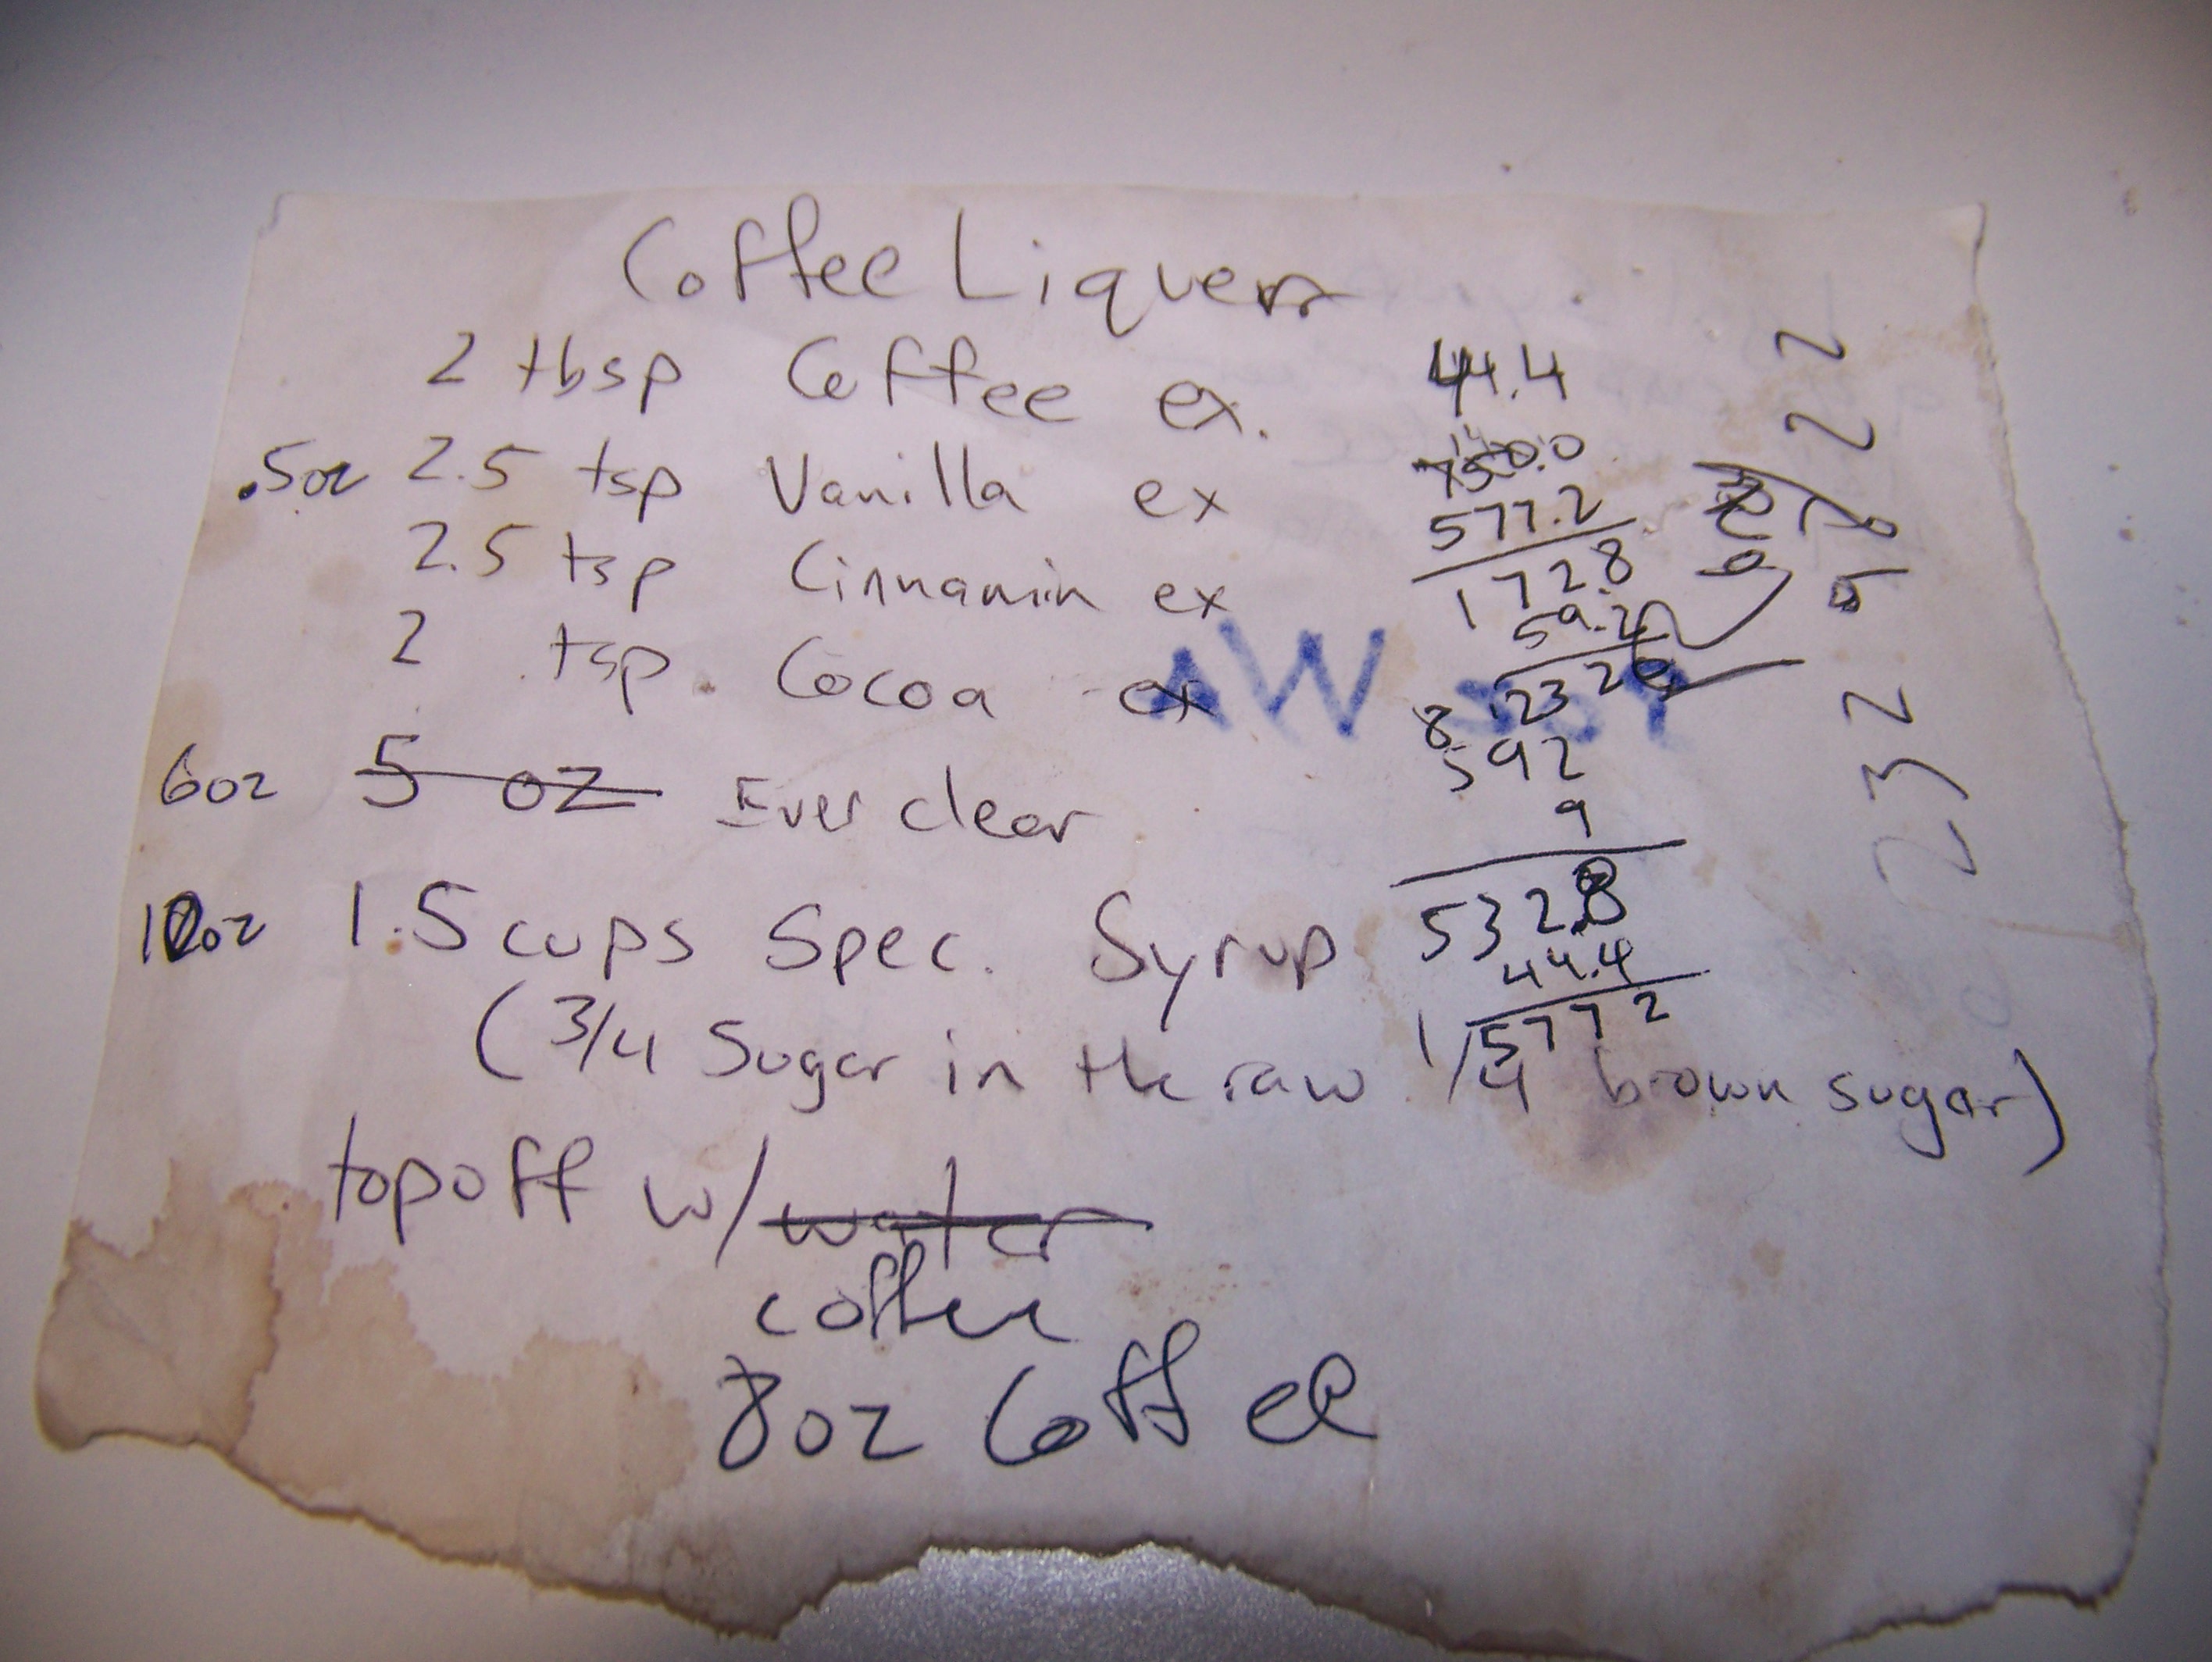 Coffee Liquerr
2 tbsp Coffee ex.
.5oz 2.5 tsp Vanilla ex
2.5 tsp Cinnamin ex
2 tsp. Cocoa ex
6oz 5 oz Ever clear
1.5 cups Spec. Syrup
(3/4 Sugar in the raw 1/4 brown sugar)
top off w/ water
coffee
8oz Coffee
44.4
750.0
577.2
172.8
59.2
592
9
532.8
44.4
577 2